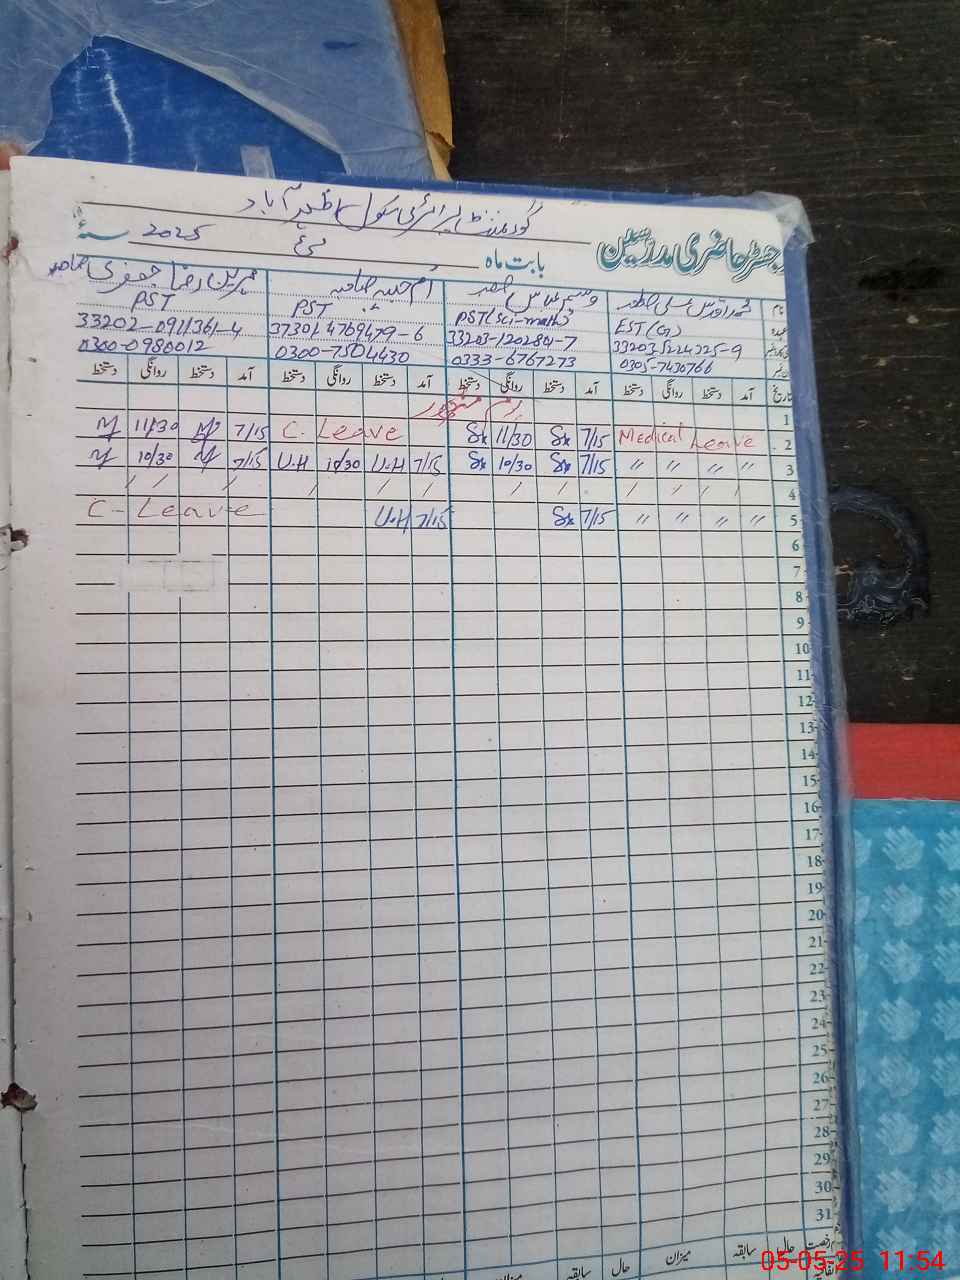 گورنمنٹ پرائمری سکول اظہر آباد
رجسٹر حاضری مدرسین
بابت ماہ مئی سنہ 2025
نام محمد اقدس علی وسیم عباس صاحب ام حبیبہ صاحبہ رضا جعفری صاحب
عہدہ EST(G) PST(Sci-math) PST PST
33203-5224325-9 33203-120284-7 37301-4769479-6 33202-0911361-4
0305-7430766 0333-6767273 0300-7504430 0300-0980012
تاریخ آمد دستخط روانگی دستخط آمد دستخط روانگی دستخط آمد دستخط روانگی دستخط آمد دستخط روانگی دستخط
1 یوم مزدور
2 Medical Leave 7/15 Sx 11/30 Sx C. Leave 7/15 11/30
3 " " " " 7/15 Sx 10/30 Sx 7/15 U.H 10/30 U.H 7/15 10/30
4 / / / / / / / / / / / /
5 " " " " 7/15 Sx 7/15 U.H C- Leave
6
7
8
9
10
11
12
13
14
15
16
17
18
19
20
21
22
23
24
25
26
27
28
29
30
31
رخصت حال سابقہ میزان حال سابقہ میزان
05-05-25 11:54